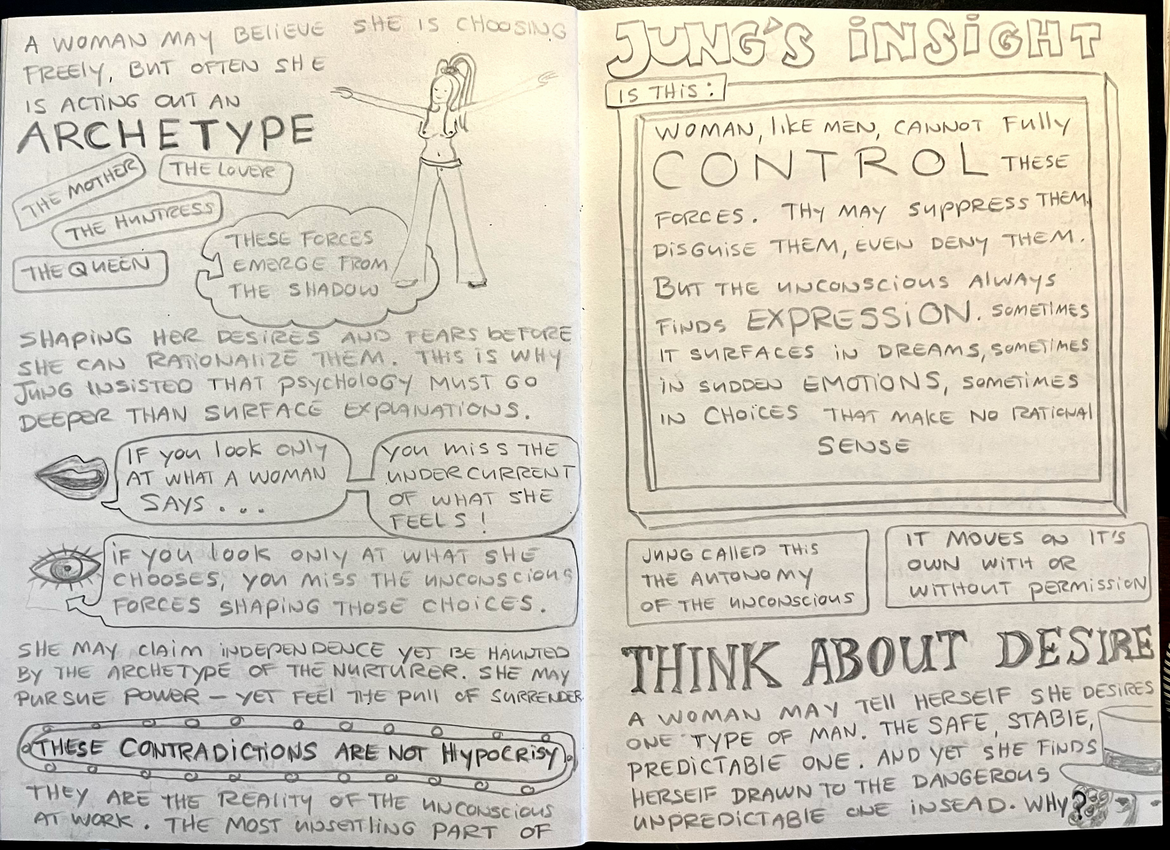 A WOMAN MAY BELIEVE SHE IS CHOOSING
FREELY, BUT OFTEN SHE
IS ACTING OUT AN
ARCHETYPE
THE MOTHER
THE LOVER
THE HUNTRESS
THE QUEEN
THESE FORCES
EMERGE FROM
THE SHADOW
SHAPING HER DESIRES AND FEARS BEFORE
SHE CAN RATIONALIZE THEM. THIS IS WHY
JUNG INSISTED THAT PSYCHOLOGY MUST GO
DEEPER THAN SURFACE EXPLANATIONS.
IF YOU LOOK ONLY
AT WHAT A WOMAN
SAYS...
YOU MISS THE
UNDERCURRENT
OF WHAT SHE
FEELS!
IF YOU LOOK ONLY AT WHAT SHE
CHOOSES, YOU MISS THE UNCONSCIOUS
FORCES SHAPING THOSE CHOICES.
SHE MAY CLAIM INDEPENDENCE YET BE HAUNTED
BY THE ARCHETYPE OF THE NURTURER. SHE MAY
PURSUE POWER — YET FEEL THE PULL OF SURRENDER
THESE CONTRADICTIONS ARE NOT HYPOCRISY
THEY ARE THE REALITY OF THE UNCONSCIOUS
AT WORK. THE MOST UNSETTLING PART OF
JUNG'S INSIGHT
IS THIS:
WOMAN, LIKE MEN, CANNOT FULLY
CONTROL THESE
FORCES. THY MAY SUPPRESS THEM,
DISGUISE THEM, EVEN DENY THEM.
BUT THE UNCONSCIOUS ALWAYS
FINDS EXPRESSION. SOMETIMES
IT SURFACES IN DREAMS, SOMETIMES
IN SUDDEN EMOTIONS, SOMETIMES
IN CHOICES THAT MAKE NO RATIONAL
SENSE
JUNG CALLED THIS
THE AUTONOMY
OF THE UNCONSCIOUS
IT MOVES ON IT'S
OWN WITH OR
WITHOUT PERMISSION
THINK ABOUT DESIRE
A WOMAN MAY TELL HERSELF SHE DESIRES
ONE TYPE OF MAN. THE SAFE, STABLE,
PREDICTABLE ONE. AND YET SHE FINDS
HERSELF DRAWN TO THE DANGEROUS
UNPREDICTABLE ONE INSEAD. WHY?